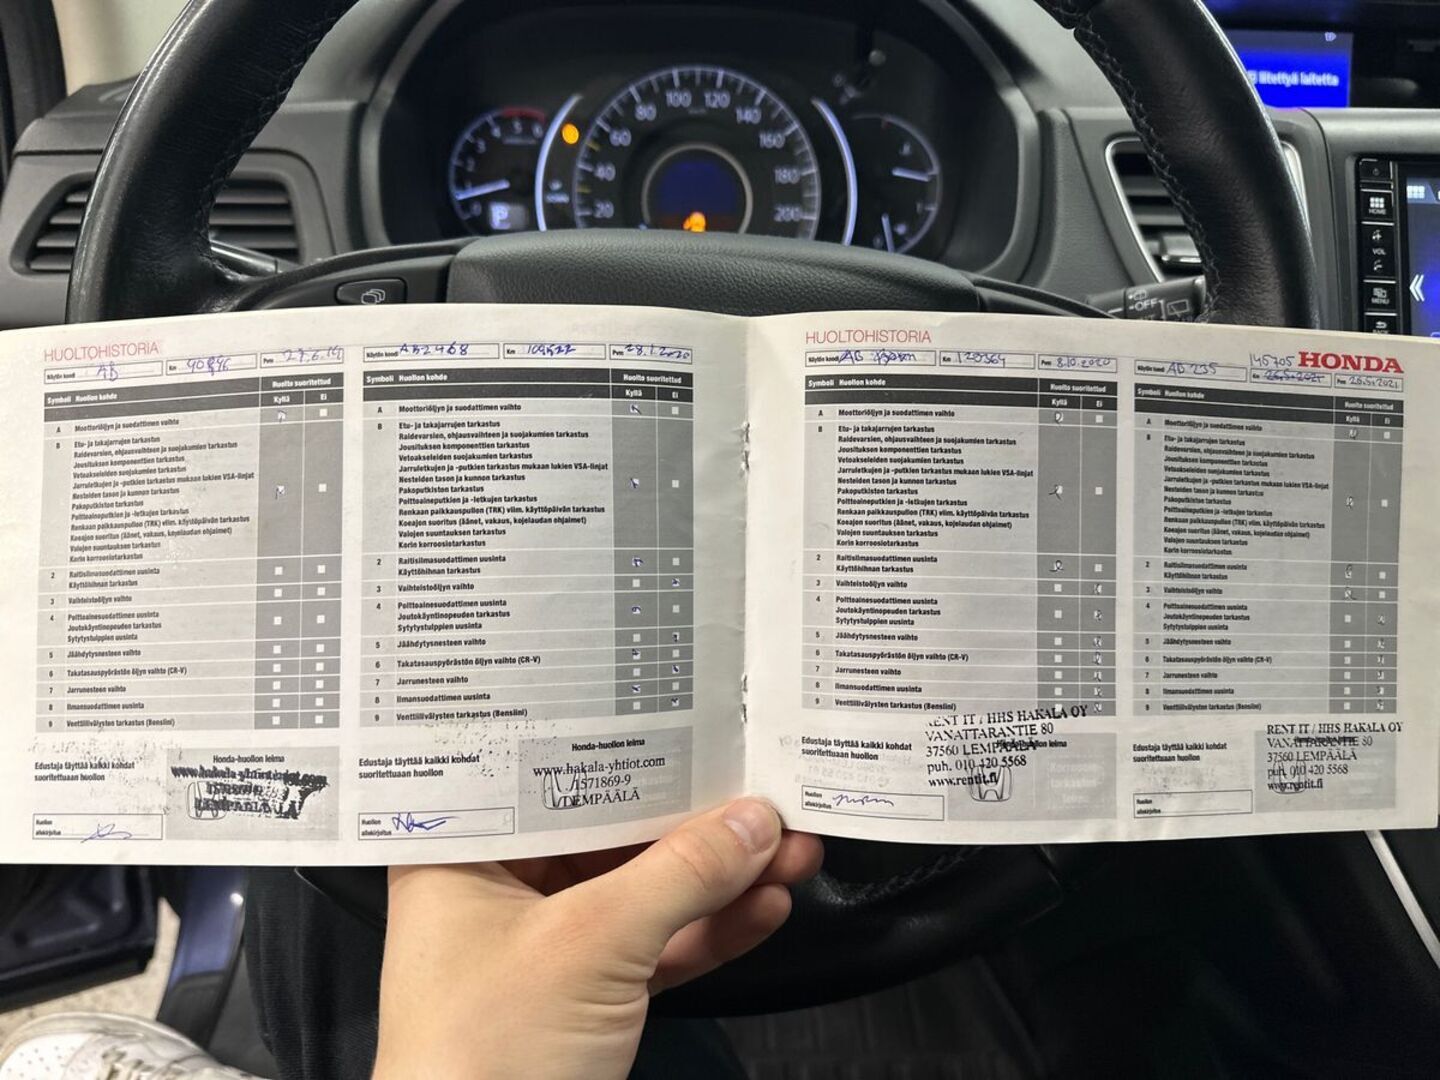 HUOLTOHISTORIA
Näytön koodi AB
Km
Pvm
Symboli Huollon kohde
Huolto suoritettud
Kyllä Ei
A Moottoriöljyn ja suodattimen vaihto
B Etu- ja takajarrujen tarkastus
Raidevarsien, ohjausvaihteen ja suojakumien tarkastus
Jousituksen komponenttien tarkastus
Vetoakseleiden suojakumien tarkastus
Jarruletkujen ja -putkien tarkastus mukaan lukien VSA-linjat
Nesteiden tason ja kunnon tarkastus
Pakoputkiston tarkastus
Polttoaineputkien ja -letkujen tarkastus
Renkaan paikkauspullon (TRK) viim. käyttöpäivän tarkastus
Koeajon suoritus (äänet, vakaus, kojelaudan ohjaimet)
Valojen suuntauksen tarkastus
Korin korroosiotarkastus
2 Raitisilmasuodattimen uusinta
Käyttöhihnan tarkastus
3 Vaihteistoöljyn vaihto
4 Polttoainesuodattimen uusinta
Joutokäyntinopeuden tarkastus
Sytytystulppien uusinta
5 Jäähdytysnesteen vaihto
6 Takatasauspyörästön öljyn vaihto (CR-V)
7 Jarrunesteen vaihto
8 Ilmansuodattimen uusinta
9 Venttiilivälysten tarkastus (Bensiini)
Edustaja täyttää kaikki kohdat
suoritettuaan huollon
Honda-huollon leima
www.hakala-yhtiot.com
Huollon
allekirjoitus
Näytön koodi AB2468
Km
Pvm 28.1.2020
Symboli Huollon kohde
Huolto suoritettud
Kyllä Ei
A Moottoriöljyn ja suodattimen vaihto
B Etu- ja takajarrujen tarkastus
Raidevarsien, ohjausvaihteen ja suojakumien tarkastus
Jousituksen komponenttien tarkastus
Vetoakseleiden suojakumien tarkastus
Jarruletkujen ja -putkien tarkastus mukaan lukien VSA-linjat
Nesteiden tason ja kunnon tarkastus
Pakoputkiston tarkastus
Polttoaineputkien ja -letkujen tarkastus
Renkaan paikkauspullon (TRK) viim. käyttöpäivän tarkastus
Koeajon suoritus (äänet, vakaus, kojelaudan ohjaimet)
Valojen suuntauksen tarkastus
Korin korroosiotarkastus
2 Raitisilmasuodattimen uusinta
Käyttöhihnan tarkastus
3 Vaihteistoöljyn vaihto
4 Polttoainesuodattimen uusinta
Joutokäyntinopeuden tarkastus
Sytytystulppien uusinta
5 Jäähdytysnesteen vaihto
6 Takatasauspyörästön öljyn vaihto (CR-V)
7 Jarrunesteen vaihto
8 Ilmansuodattimen uusinta
9 Venttiilivälysten tarkastus (Bensiini)
Edustaja täyttää kaikki kohdat
suoritettuaan huollon
Honda-huollon leima
www.hakala-yhtiot.com
1571869-9
LEMPÄÄLÄ
Huollon
allekirjoitus
HUOLTOHISTORIA
Näytön koodi AB
Km 120364
Pvm 8.10.2020
Symboli Huollon kohde
Huolto suoritettud
Kyllä Ei
A Moottoriöljyn ja suodattimen vaihto
B Etu- ja takajarrujen tarkastus
Raidevarsien, ohjausvaihteen ja suojakumien tarkastus
Jousituksen komponenttien tarkastus
Vetoakseleiden suojakumien tarkastus
Jarruletkujen ja -putkien tarkastus mukaan lukien VSA-linjat
Nesteiden tason ja kunnon tarkastus
Pakoputkiston tarkastus
Polttoaineputkien ja -letkujen tarkastus
Renkaan paikkauspullon (TRK) viim. käyttöpäivän tarkastus
Koeajon suoritus (äänet, vakaus, kojelaudan ohjaimet)
Valojen suuntauksen tarkastus
Korin korroosiotarkastus
2 Raitisilmasuodattimen uusinta
Käyttöhihnan tarkastus
3 Vaihteistoöljyn vaihto
4 Polttoainesuodattimen uusinta
Joutokäyntinopeuden tarkastus
Sytytystulppien uusinta
5 Jäähdytysnesteen vaihto
6 Takatasauspyörästön öljyn vaihto (CR-V)
7 Jarrunesteen vaihto
8 Ilmansuodattimen uusinta
9 Venttiilivälysten tarkastus (Bensiini)
Edustaja täyttää kaikki kohdat
suoritettuaan huollon
RENT IT / HHS HAKALA OY
VANATTARANTIE 80
37560 LEMPÄÄLÄ
puh. 010 420 5568
www.rentit.fi
Huollon
allekirjoitus
145705 HONDA
Näytön koodi AB 235
Km 26.5.2021
Pvm 26.5.2021
Symboli Huollon kohde
Huolto suoritettud
Kyllä Ei
A Moottoriöljyn ja suodattimen vaihto
B Etu- ja takajarrujen tarkastus
Raidevarsien, ohjausvaihteen ja suojakumien tarkastus
Jousituksen komponenttien tarkastus
Vetoakseleiden suojakumien tarkastus
Jarruletkujen ja -putkien tarkastus mukaan lukien VSA-linjat
Nesteiden tason ja kunnon tarkastus
Pakoputkiston tarkastus
Polttoaineputkien ja -letkujen tarkastus
Renkaan paikkauspullon (TRK) viim. käyttöpäivän tarkastus
Koeajon suoritus (äänet, vakaus, kojelaudan ohjaimet)
Valojen suuntauksen tarkastus
Korin korroosiotarkastus
2 Raitisilmasuodattimen uusinta
Käyttöhihnan tarkastus
3 Vaihteistoöljyn vaihto
4 Polttoainesuodattimen uusinta
Joutokäyntinopeuden tarkastus
Sytytystulppien uusinta
5 Jäähdytysnesteen vaihto
6 Takatasauspyörästön öljyn vaihto (CR-V)
7 Jarrunesteen vaihto
8 Ilmansuodattimen uusinta
9 Venttiilivälysten tarkastus (Bensiini)
Edustaja täyttää kaikki kohdat
suoritettuaan huollon
RENT IT / HHS HAKALA OY
VANATTARANTIE 80
37560 LEMPÄÄLÄ
puh. 010 420 5568
www.rentit.fi
Huollon
allekirjoitus
20 40 60 80 100 120 140 160 180 200
P
liitettyä laitetta
HOME
VOL
MENU
BACK
OFF